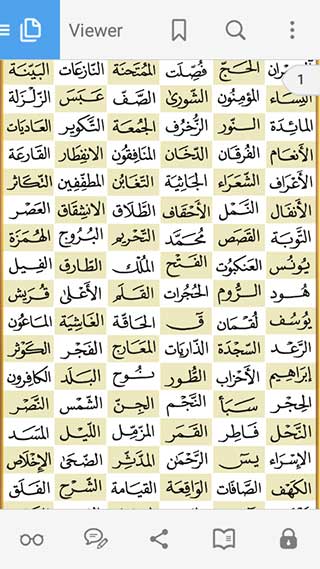 Viewer
1
آل عمران الحَجّ فُصِّلَت المُمْتَحنَة النَّازعَات البَيِّنَة
النِّسَاء المؤمِنُون الشّورىٰ الصَّف عَبَسَ الزَّلْزَلة
المائدَة النّور الزّخرُف الجُمعَة التَّكوير العَاديَات
الأنعَام الفُرقَان الدّخَان المنَافِقُون الانفِطَار القَارعَة
الأعْرَاف الشُّعَرَاء الجَاثيَة التَّغَابُن المطفِّفِين التَّكَاثر
الأنفَال النَّمْل الأحْقَاف الطَّلَاق الانشِقَاق العَصْر
التَّوبَة القَصَص مُحَمَّد التَّحْريم البُرُوج الهُمَزَة
يُونُس العَنكبُوت الفَتْح المُلْك الطَّارق الفِيل
هُود الرُّوم الحُجُرات القَلَم الأعْلَىٰ قُرَيش
يُوسُف لُقمَان قَ الحَاقَّة الغَاشِيَة المَاعُون
الرَّعْد السَّجْدَة الذّاريَات المعَارج الفَجْر الكَوْثر
إبراهِيم الأحْزَاب الطُّور نُوح البَلَد الكافِرون
الحِجْر سَبَأ النَّجْم الجِنّ الشَّمْس النَّصْر
النَّحْل فَاطِر القَمَر المزّمِّل اللّيْل المَسَد
الإسْرَاء يسٓ الرَّحْمٰن المدَّثِّر الضّحَىٰ الإخلَاص
الكَهْف الصَّافات الوَاقِعَة القيَامَة الشَّرْح الفَلَق